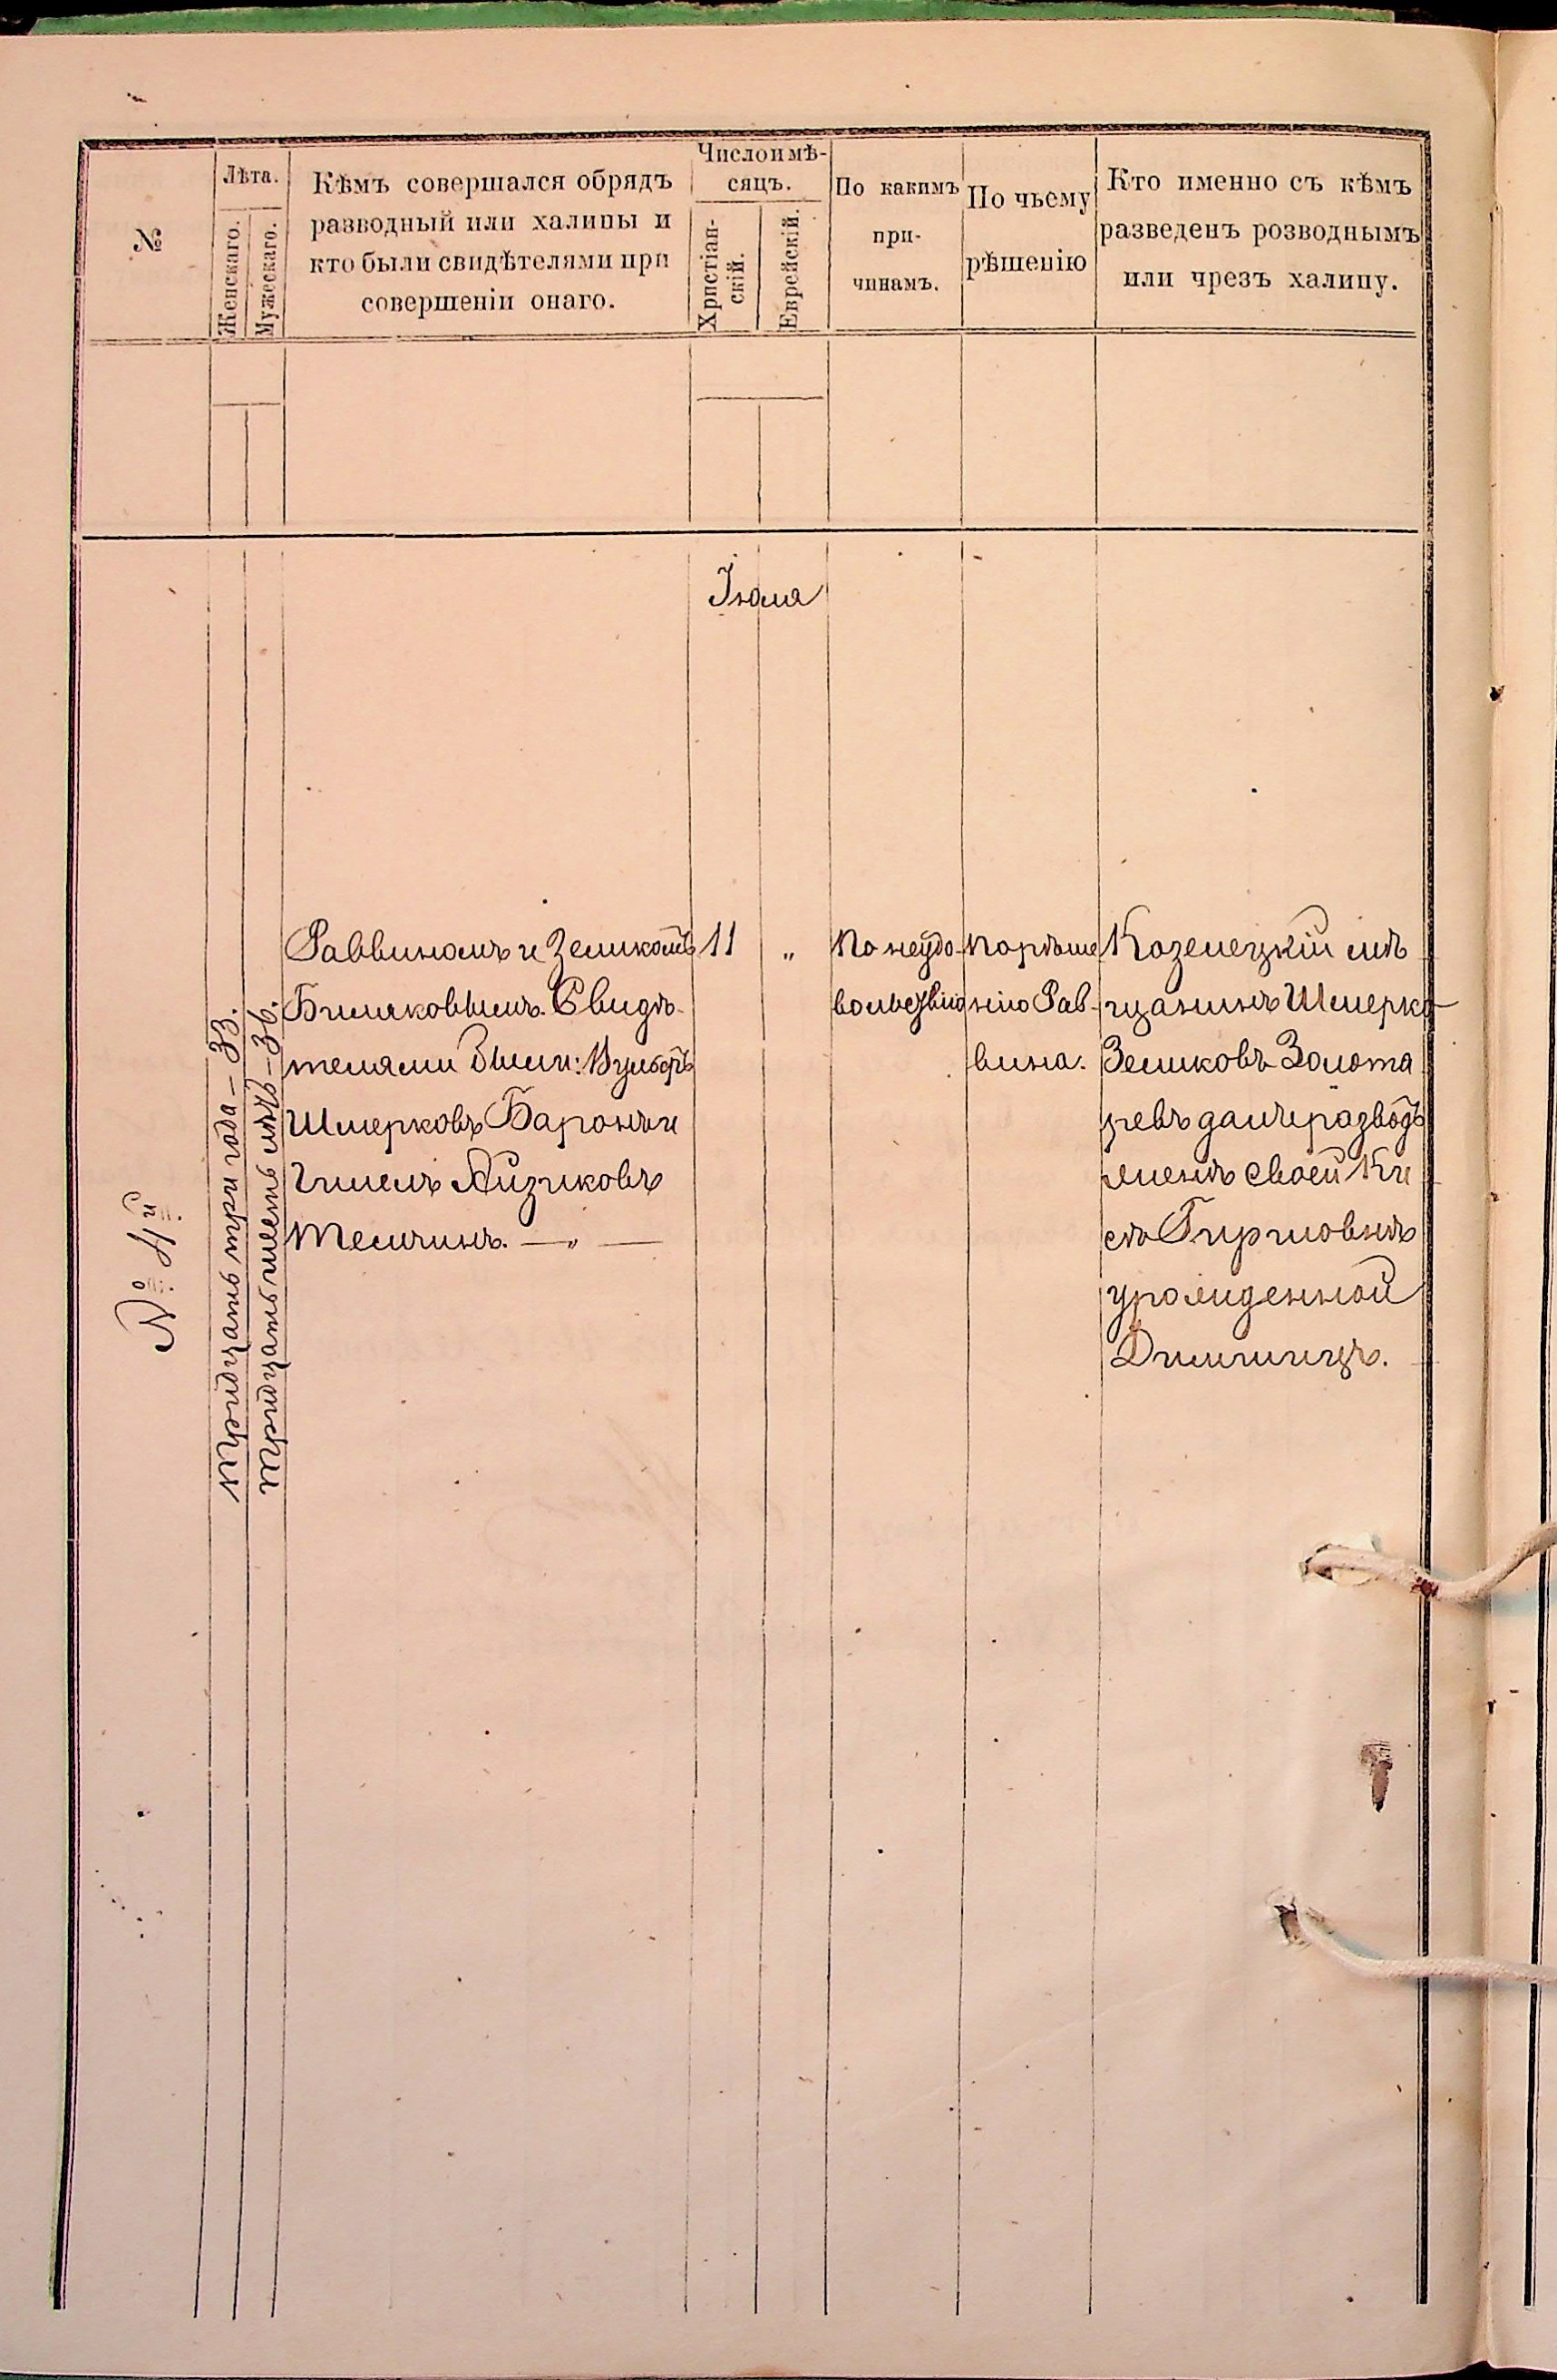 №
Лѣта.
Женскаго.
Мужескаго.
Кѣмъ совершался обрядъ
разводный или халицы и
кто были свидѣтелями при
совершеніи онаго.
Число и мѣ-
сяцъ.
Христіан-
скій.
Еврейскій.
По какимъ
при-
чинамъ.
По чьему
рѣшенію
Кто именно съ кѣмъ
разведенъ розводнымъ
или чрезъ халицу.
Іюля
№ 4й
тридцать три года – 33.
тридцать шесть лѣтъ – 36.
Раввиномъ и Зеликомъ
Свидѣ-
телями были:
Шмерковъ Баронъ и
Айзиковъ
11
„
По неудо-
вольствію
По рѣше
нію Рав-
вина.
Козелецкій мѣ
щанинъ Шмерко
Зеликовъ Золота
ревъ далъ разводъ
женѣ своей Ки
сѣ Гиршовнѣ
урожденной